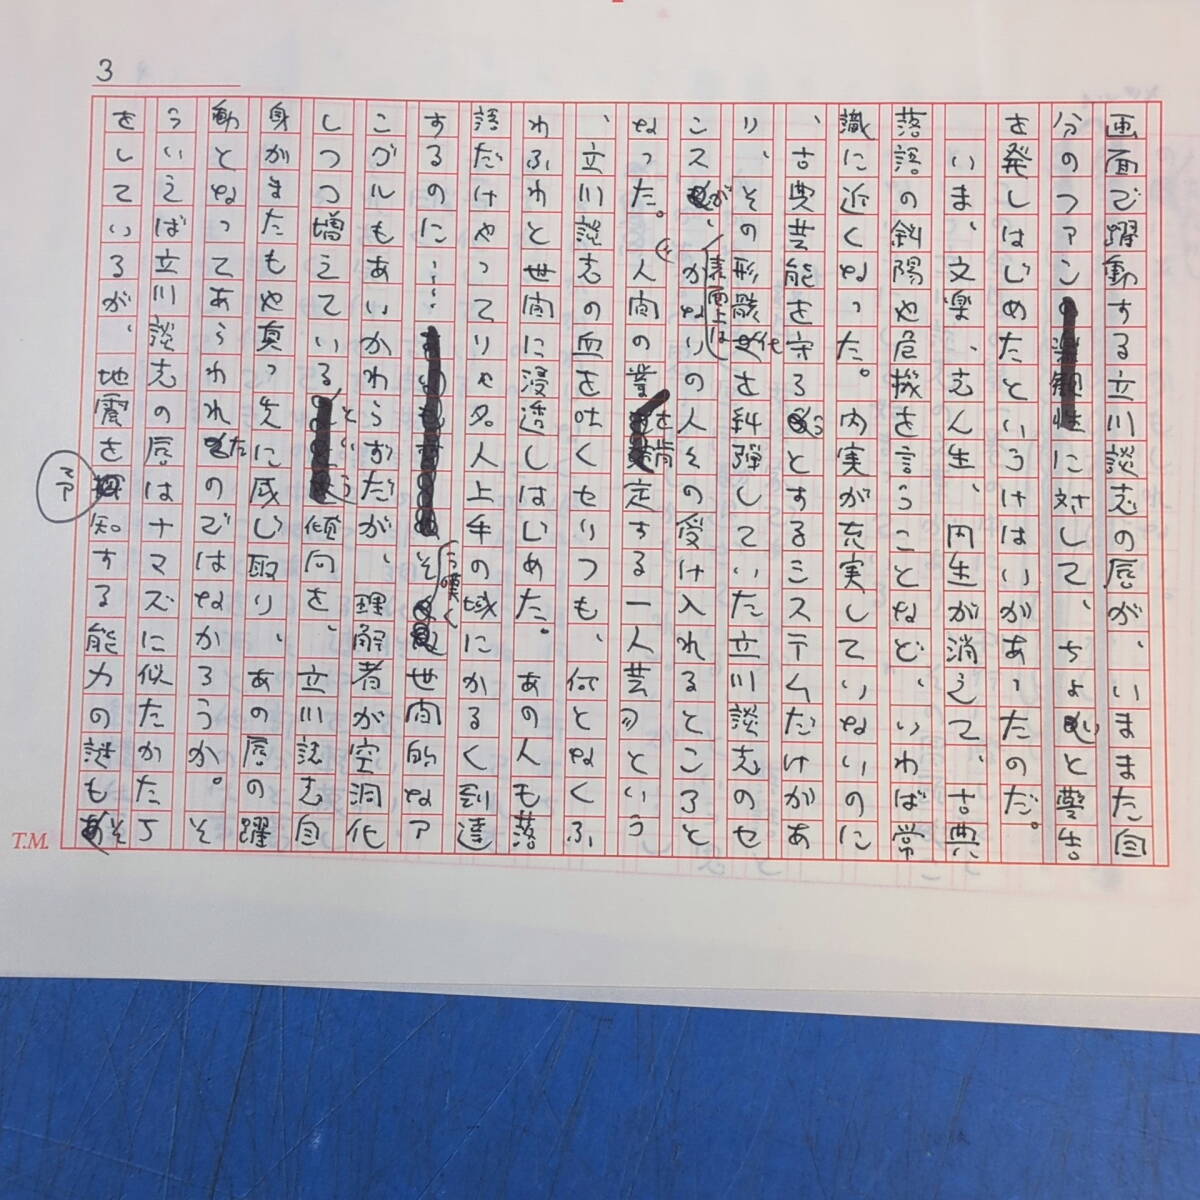 3
画面で躍動する立川談志の唇が、いままた自
分のファンに対して、ちょいと警告
を発しはじめたというけはいがあったのだ。
いま、文楽、志ん生、円生が消えて、古典
落語の斜陽や危機を言うことなど、いわば常
識に近くなった。内実が充実していないのに
、古典芸能を守ろうとするシステムだけがあ
り、その形骸化を糾弾していた立川談志のセ
ンスが、表面上はかなりの人々の受け入れるところと
なった。人間の業を肯定する一人芸という
、立川談志の血を吐くセリフも、何となくふ
わふわと世間に浸透しはじめた。あの人も落
語だけやってりゃ名人上手の域にかるく到達
するのに……そう嘆く世間的な
アングルもあいかわらずだが、理解者が空洞化
しつつ増えているという傾向を、立川談志自
身がまたもや真っ先に感じ取り、あの唇の躍
動となってあらわれたのではなかろうか。そ
ういえば立川談志の唇はナマズに似たかたち
をしているが、地震を知する能力の謎もそ
T.M.